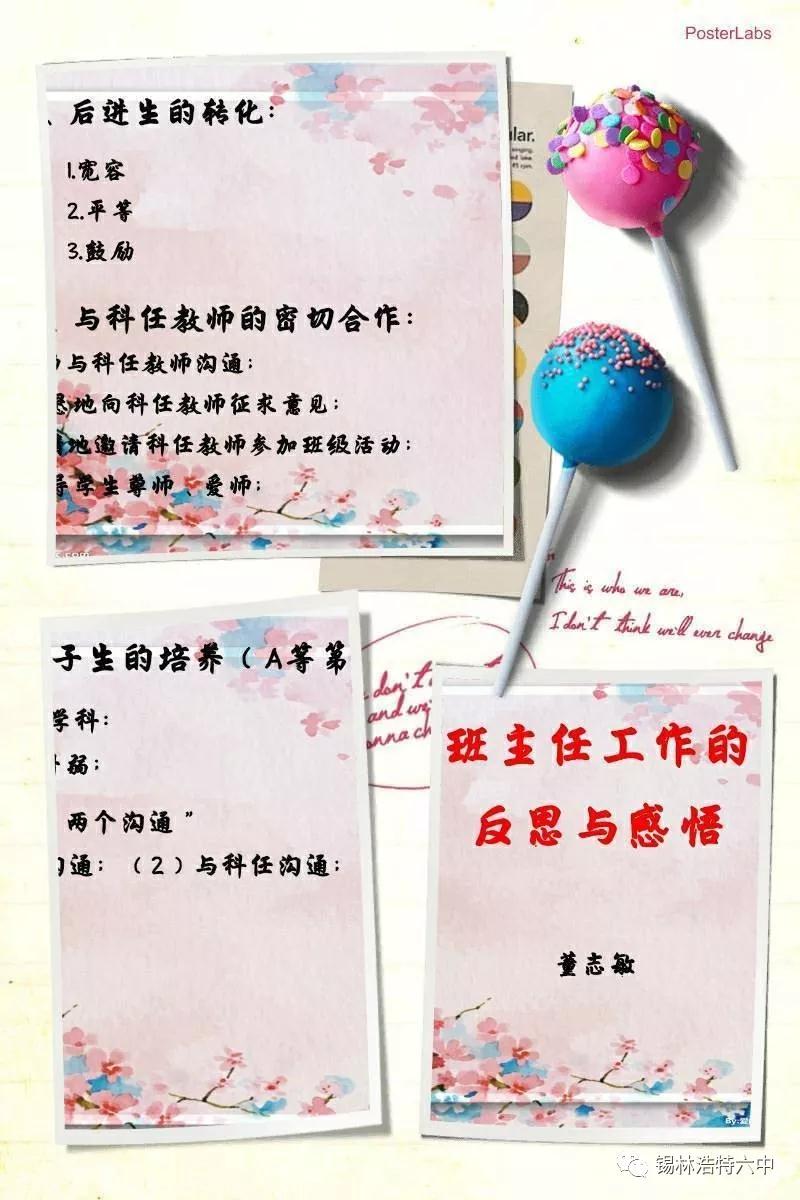 PosterLabs
、后进生的转化：
1.宽容
2.平等
3.鼓励
、与科任教师的密切合作：
与科任教师沟通；
地向科任教师征求意见；
地邀请科任教师参加班级活动；
学生尊师、爱师；
s.com
ular.
This is who we are,
I don't think we'll ever change
don't
and we
onna ch
子生的培养（A等第
学科：
弱；
两个沟通”
沟通；（2）与科任沟通；
班主任工作的
反思与感悟
董志敏
By:爱
锡林浩特六中